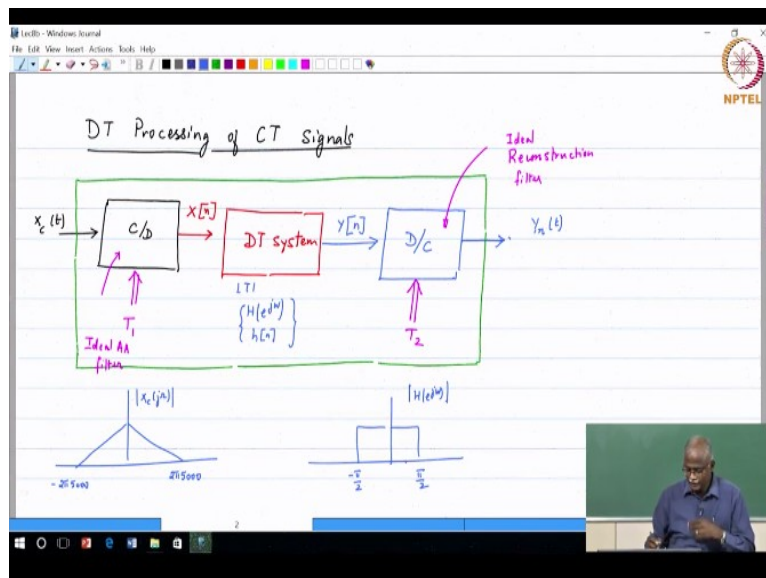 Lec8b - Windows Journal
File Edit View Insert Actions Tools Help
NPTEL
DT Processing of CT Signals
Ideal
Reconstruction
filter
x_c(t)
C/D
x[n]
DT system
y[n]
D/C
y_r(t)
LTI
H(e^jω)
h[n]
T_1
T_2
Ideal AA
filter
|X_c(jΩ)|
|H(e^jω)|
-2π5000
2π5000
-π/2
π/2
2